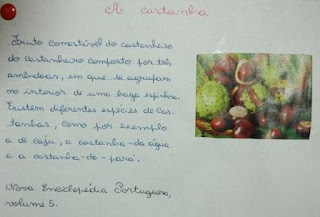 A castanha
Fruto comestível do castanheiro
do castanheiro composto por três
amêndoas, em que se agrupam
no interior de uma baga espinhosa.
Existem diferentes espécies de cas-
tanhas, como por exemplo
a de caju, a castanha-da-água
e a castanha-do-pará.
Nova Enciclopédia Portuguesa,
volume 5.